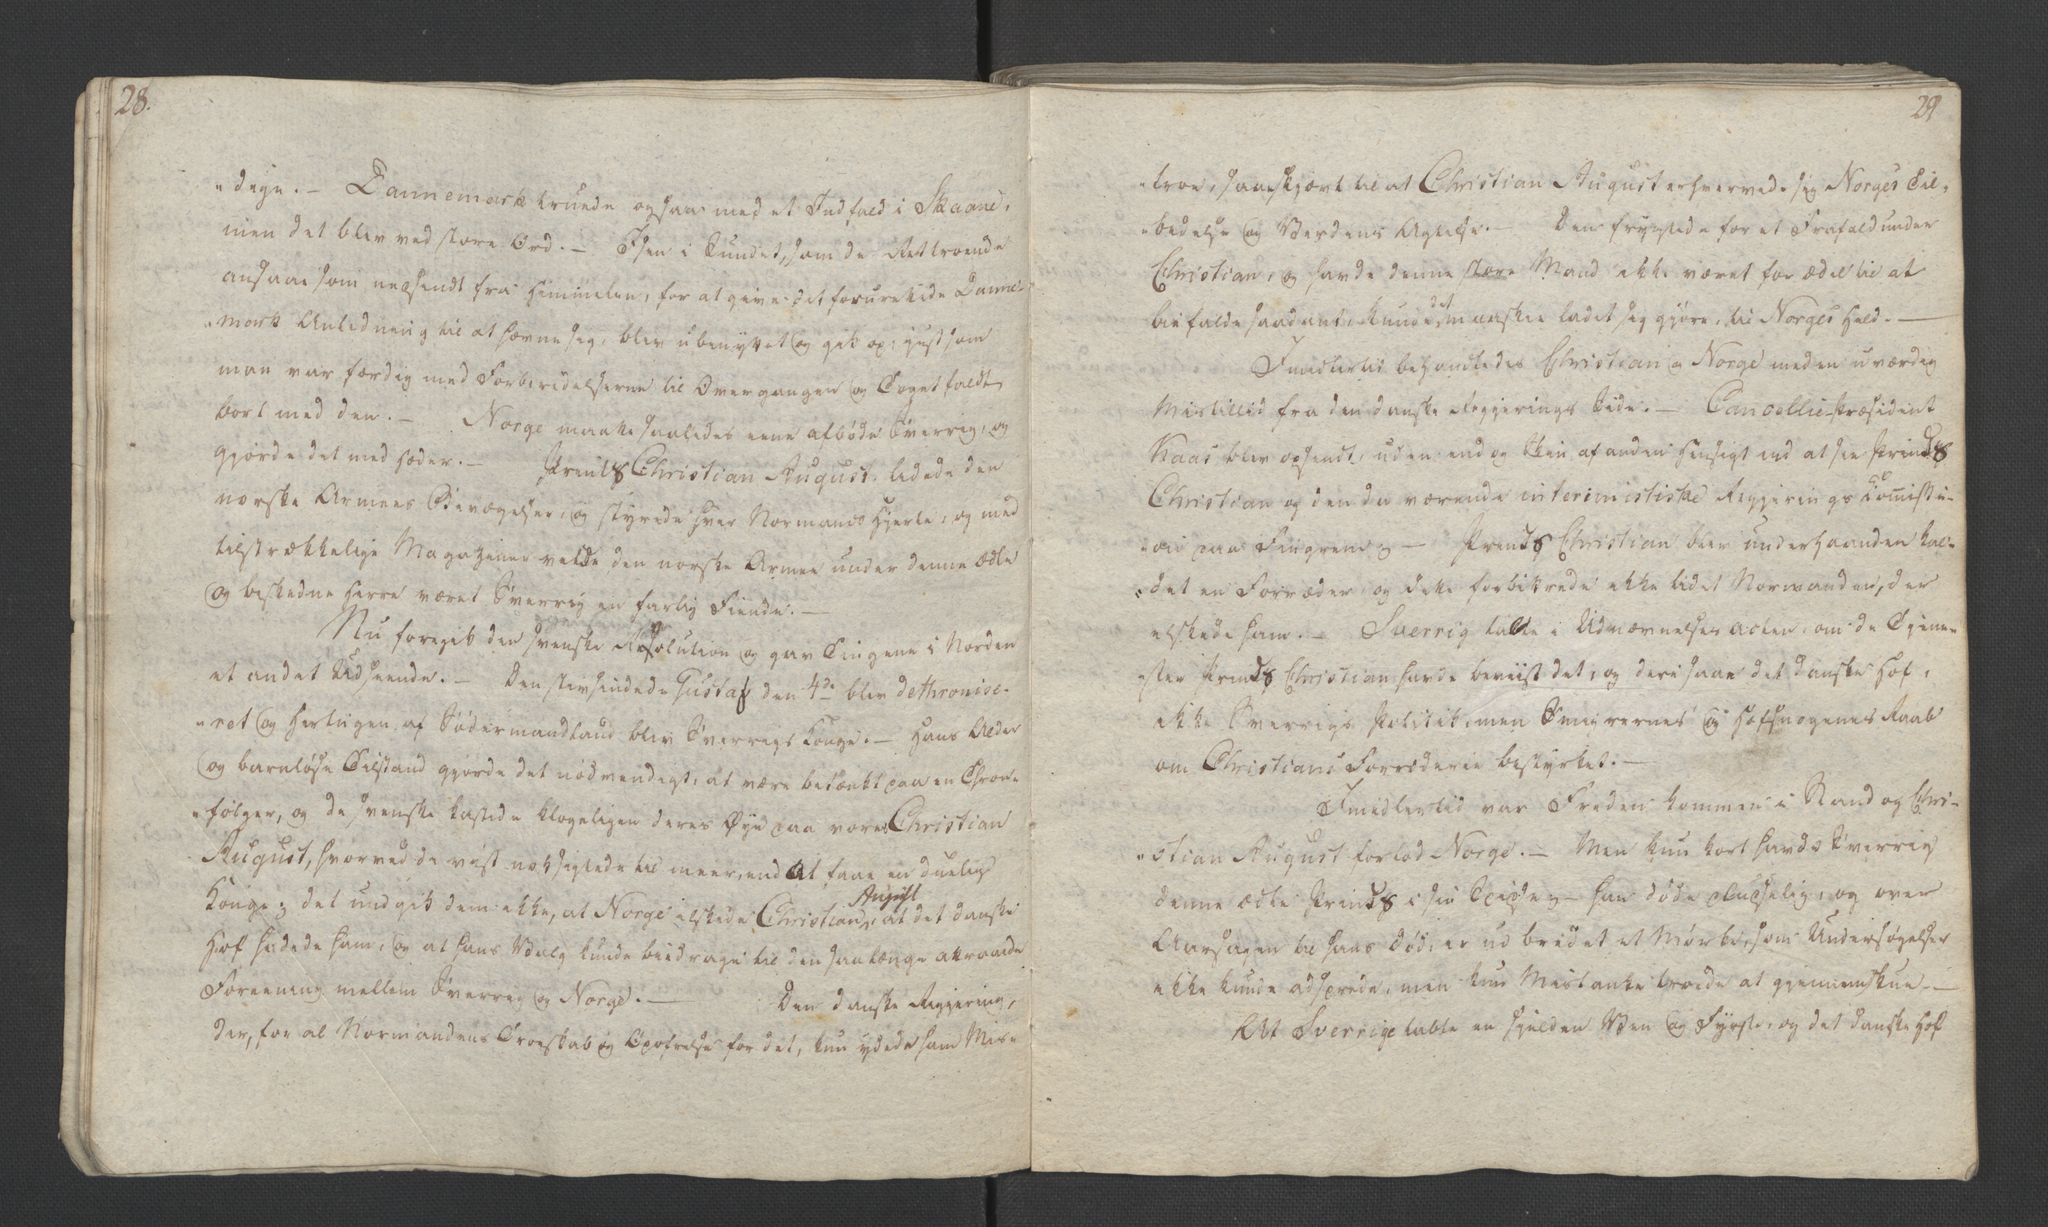 28.
"dige. — Dannemark truede ogsaa med et Indfald i Skaane,
men det blev ved store Ord. — Isen i Sundet, som de Rettroende
ansaae som nedsendt fra Himmelen, for at give det forurettede Danne-
"mark Anledning til at hevne sig, blev ubenyttet og gik op, just som
man var færdig med Forberedelserne til Overgangen og Toget faldt
bort med den. — Norge maatte saaledes ene afbøde Sverrig, og
gjorde det med Hæder. — Prints Christian August ledede den
norske Armees Bevægelser, og styrede hver Normands Hjerte, og med
tilstrækkelige Magaziner vilde den norske Armee under denne ædle
og beskedne Herre været Sverrig en farlig Fiende. —
Nu foregik den svenske Revolution og gav Tingene i Norden
et andet Udseende. — Den stivsindede Gustaf den 4de blev dethronise-
"ret og Hertugen af Södermandland blev Sverrigs Konge. — Hans Alder
og barnløse Tilstand gjorde det nødvendigt, at være betænkt paa en Thron-
"følger, og de svenske kastede klogeligen deres Øyne paa vores Christian
August, hvorved de vist nok sigtede til meer, end at faae en duelig
Konge; det undgik dem ikke, at Norge elskede Christian August, at det danske
Hof hadede ham, og at hans Valg kunde bidrage til den saa længe attraaede
Foreening mellem Sverrig og Norge. — Den danske Regjering,
der, for al Normandens Troeskab og Opofrelse for det, kun ydede ham Mis-
29
"troe, saae skjævt til at Christian August erhvervede sig Norges Til-
"bedelse og Verdens Agtelse. — Den frygtede for et Frafald under
Christian, og havde denne store Mand ikke været for ædel til at
bifalde saadant, kunde det maaskee ladet sig gjøre, til Norges Held. —
Imidlertid behandledes Christian og Norge med en uværdig
Mistillid fra den danske Regjerings Side. — Cancellie-Præsident
Kaas blev opsendt, uden end og Skin af anden Hensigt end at see Prinds
Christian og den da værende interimistiske Regjerings Commissi-
"on paa Fingrene; — Prinds Christian blev underhaanden kal-
"det en Forræder, og dette forbittrede ikke lidet Normanden, der
elskede ham. — Sverrig talte i Udnævnelses acten, om de Tjene-
"ster Prinds Christian havde beviist det, og deri saae det danske Hof,
ikke Sverrigs Politik, men Smigrernes og Hofsnogenes Raab
om Christians Forræderie bestyrket. —
Imidlertid var Freden kommen i Stand og Chri-
"stian August forlod Norge. — Men kun kort havde Sverrig
denne ædle Prinds i sin Spidse; — han døde pludselig, og over
Aarsagen til hans Død, er udbredet et Mørke, som Undersøgelser
ikke kunde adsprede, men kun Mistanke troede at gjennemskue. —
At Sverrige tabte en sjelden Ven og Fyrste, og det danske Hof